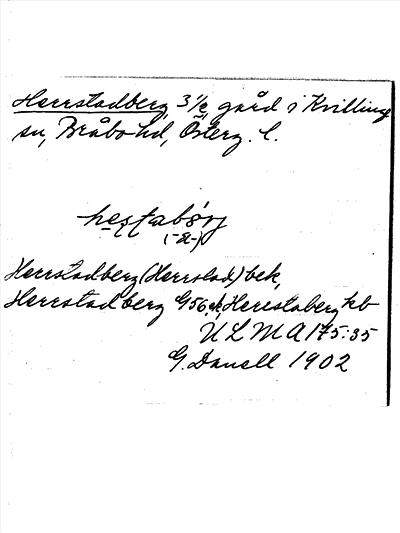 Herrstadberg, 3 1/2 gård i Kvillinge
sn, Bråbo hd, Österg. l.
hestabörj
(-st-)
Herrstadberg (Herrstad) bek,
Herrstadberg G56 ek, Herrestaberg kb
ULMA 175:35
G. Danell 1902